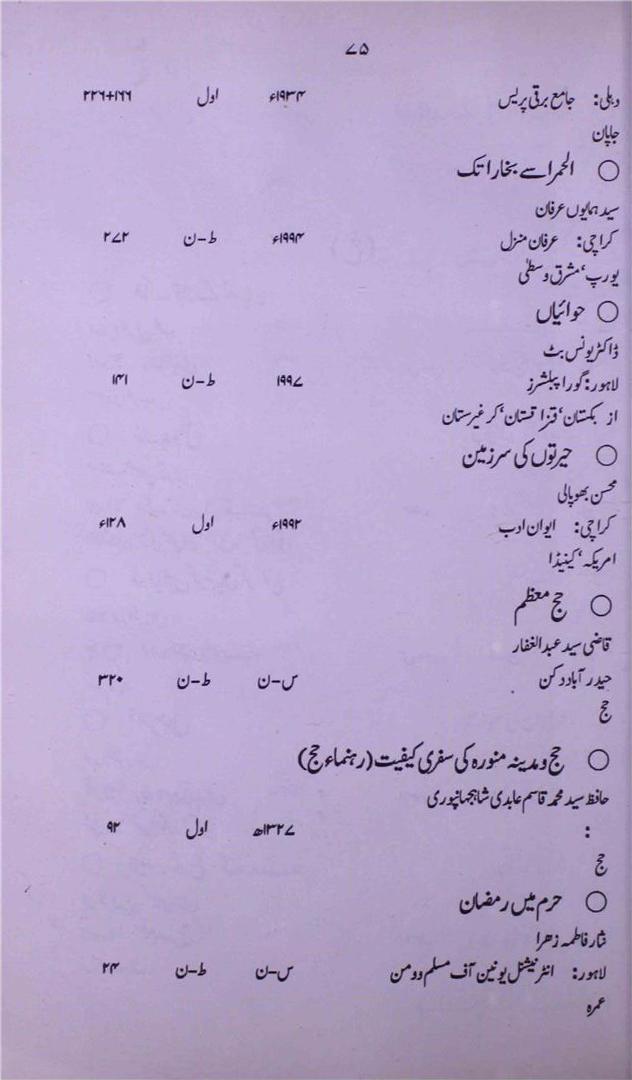 ۷۵
دہلی: جامع برقی پریس ۱۹۳۴ء اول ۲۲۶+۱۶۶
جاپان
○ الحمرا سے بخارا تک
سید ہمایوں عرفان
کراچی: عرفان منزل ۱۹۹۴ء ط-ن ۲۷۲
یورپ، مشرق وسطیٰ
○ حوائیاں
ڈاکٹر یونس بٹ
لاہور: گورا پبلشرز ۱۹۹۷ ط-ن ۱۴۱
از بکستان، قزاقستان، کرغیرستان
○ حیرتوں کی سرزمین
محسن بھوپالی
کراچی: ایوان ادب ۱۹۹۲ء اول ۱۲۸ء
امریکہ، کینیڈا
○ حج معظم
قاضی سید عبدالغفار
حیدر آباد دکن س-ن ط-ن ۳۲۰
حج
○ حج و مدینہ منورہ کی سفری کیفیت (رہنماء حج)
حافظ سید محمد قاسم عابدی شاہجہانپوری
: ۱۳۲۷ھ اول ۹۲
حج
○ حرم میں رمضان
نثار فاطمہ زہرا
لاہور: انٹرنیشنل یونین آف مسلم وومن س-ن ط-ن ۲۴
عمرہ